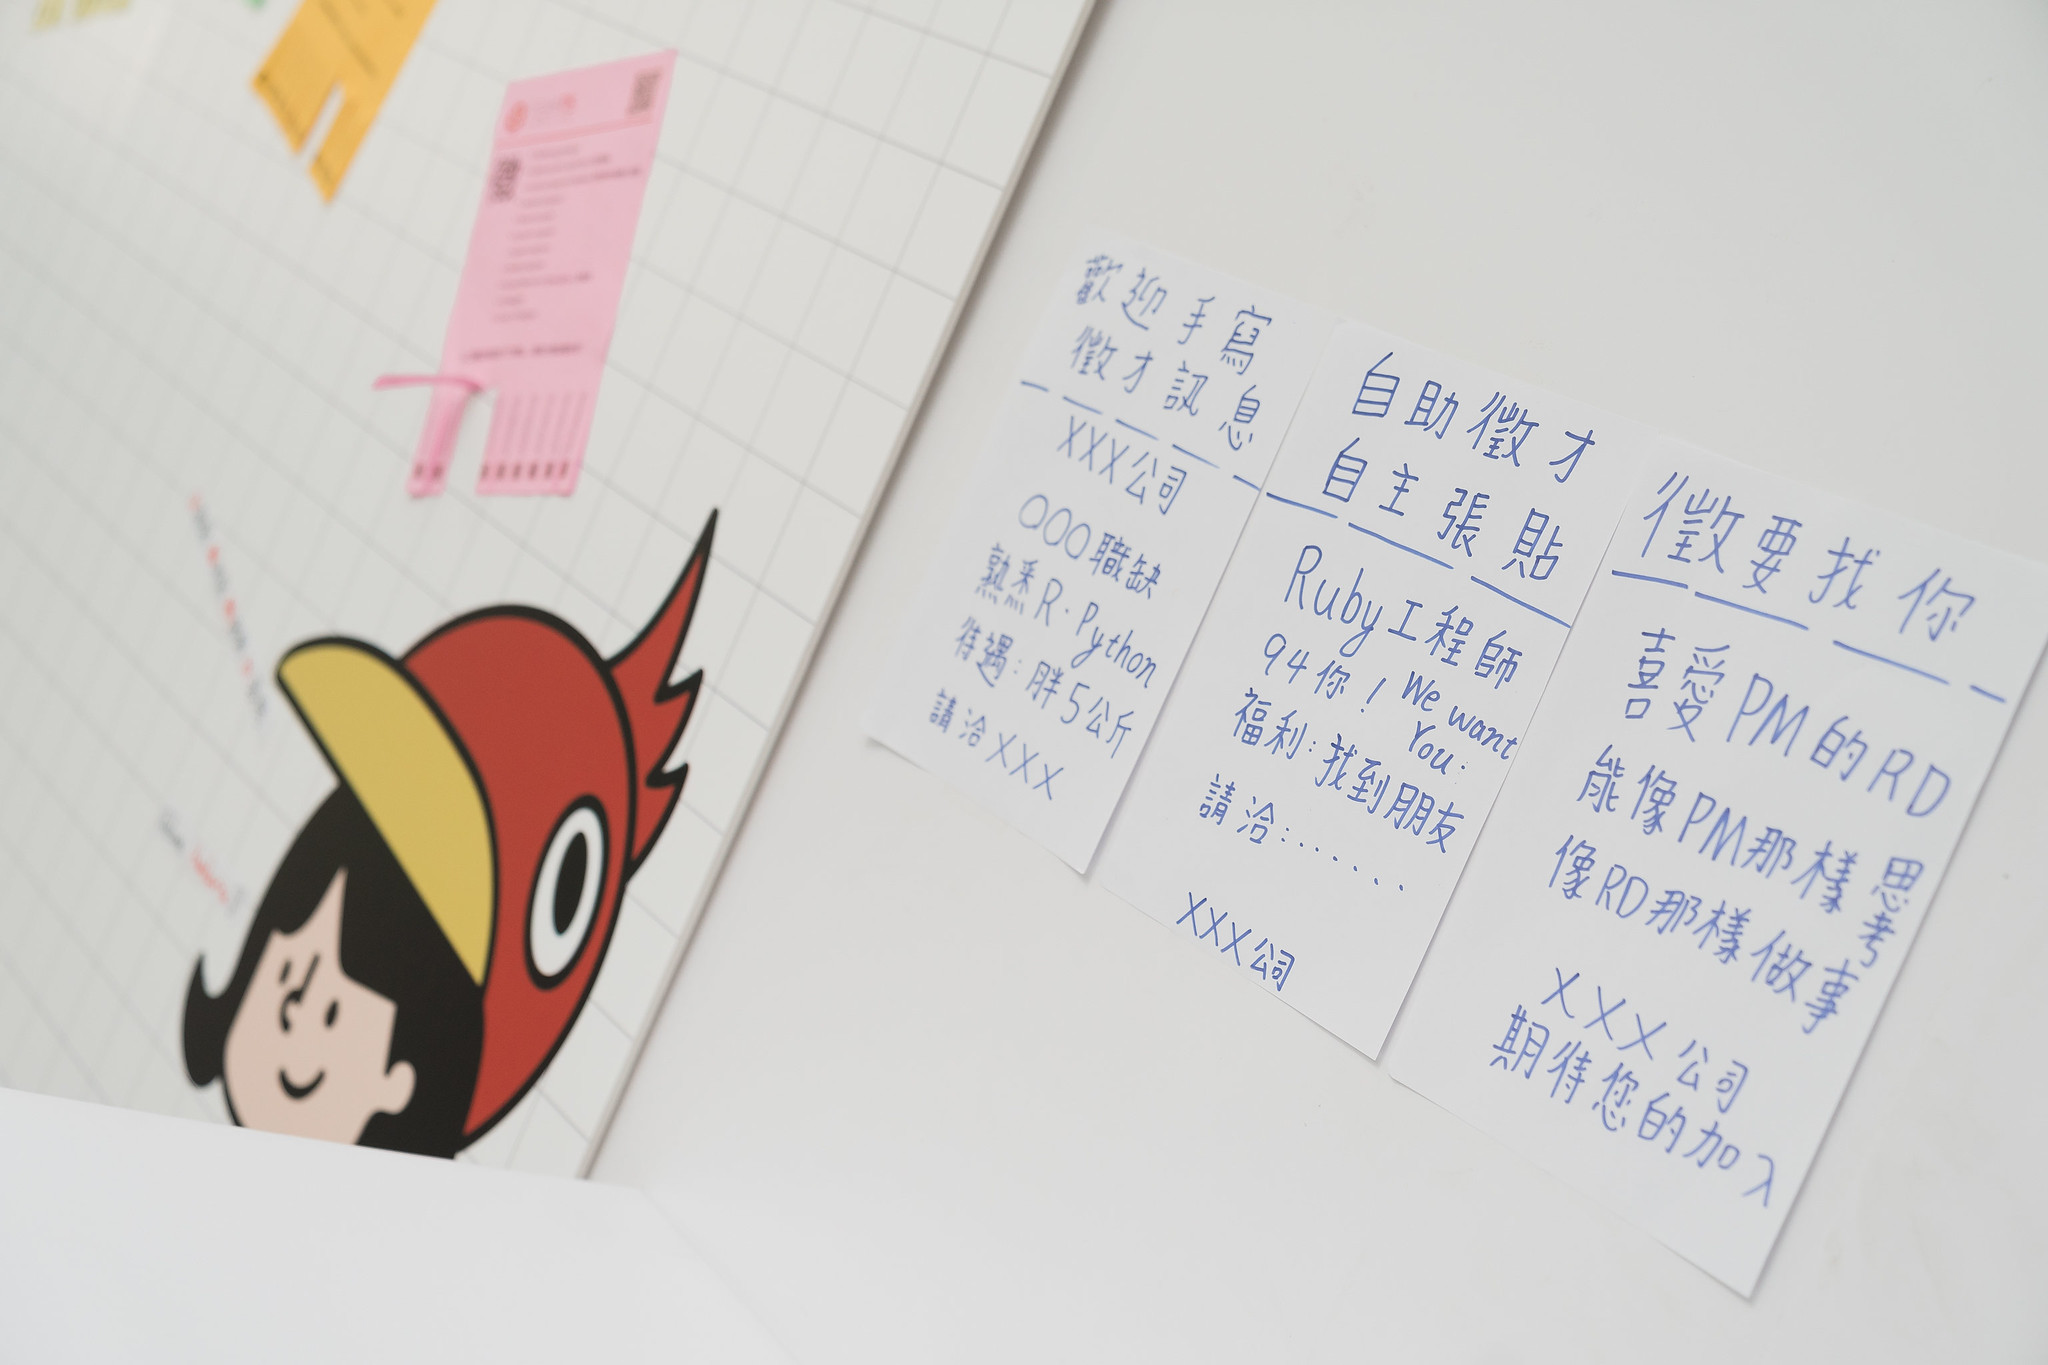 歡迎手寫
徵才訊息
XXX公司
OOO職缺
熟悉R.Python
待遇:胖5公斤
請洽XXX
自助徵才
自主張貼
Ruby工程師
94你! We want
You:
福利:找到朋友
請洽:......
XXX公司
徵要找你
喜愛PM的RD
能像PM那樣思考
像RD那樣做事
XXX公司
期待您的加入